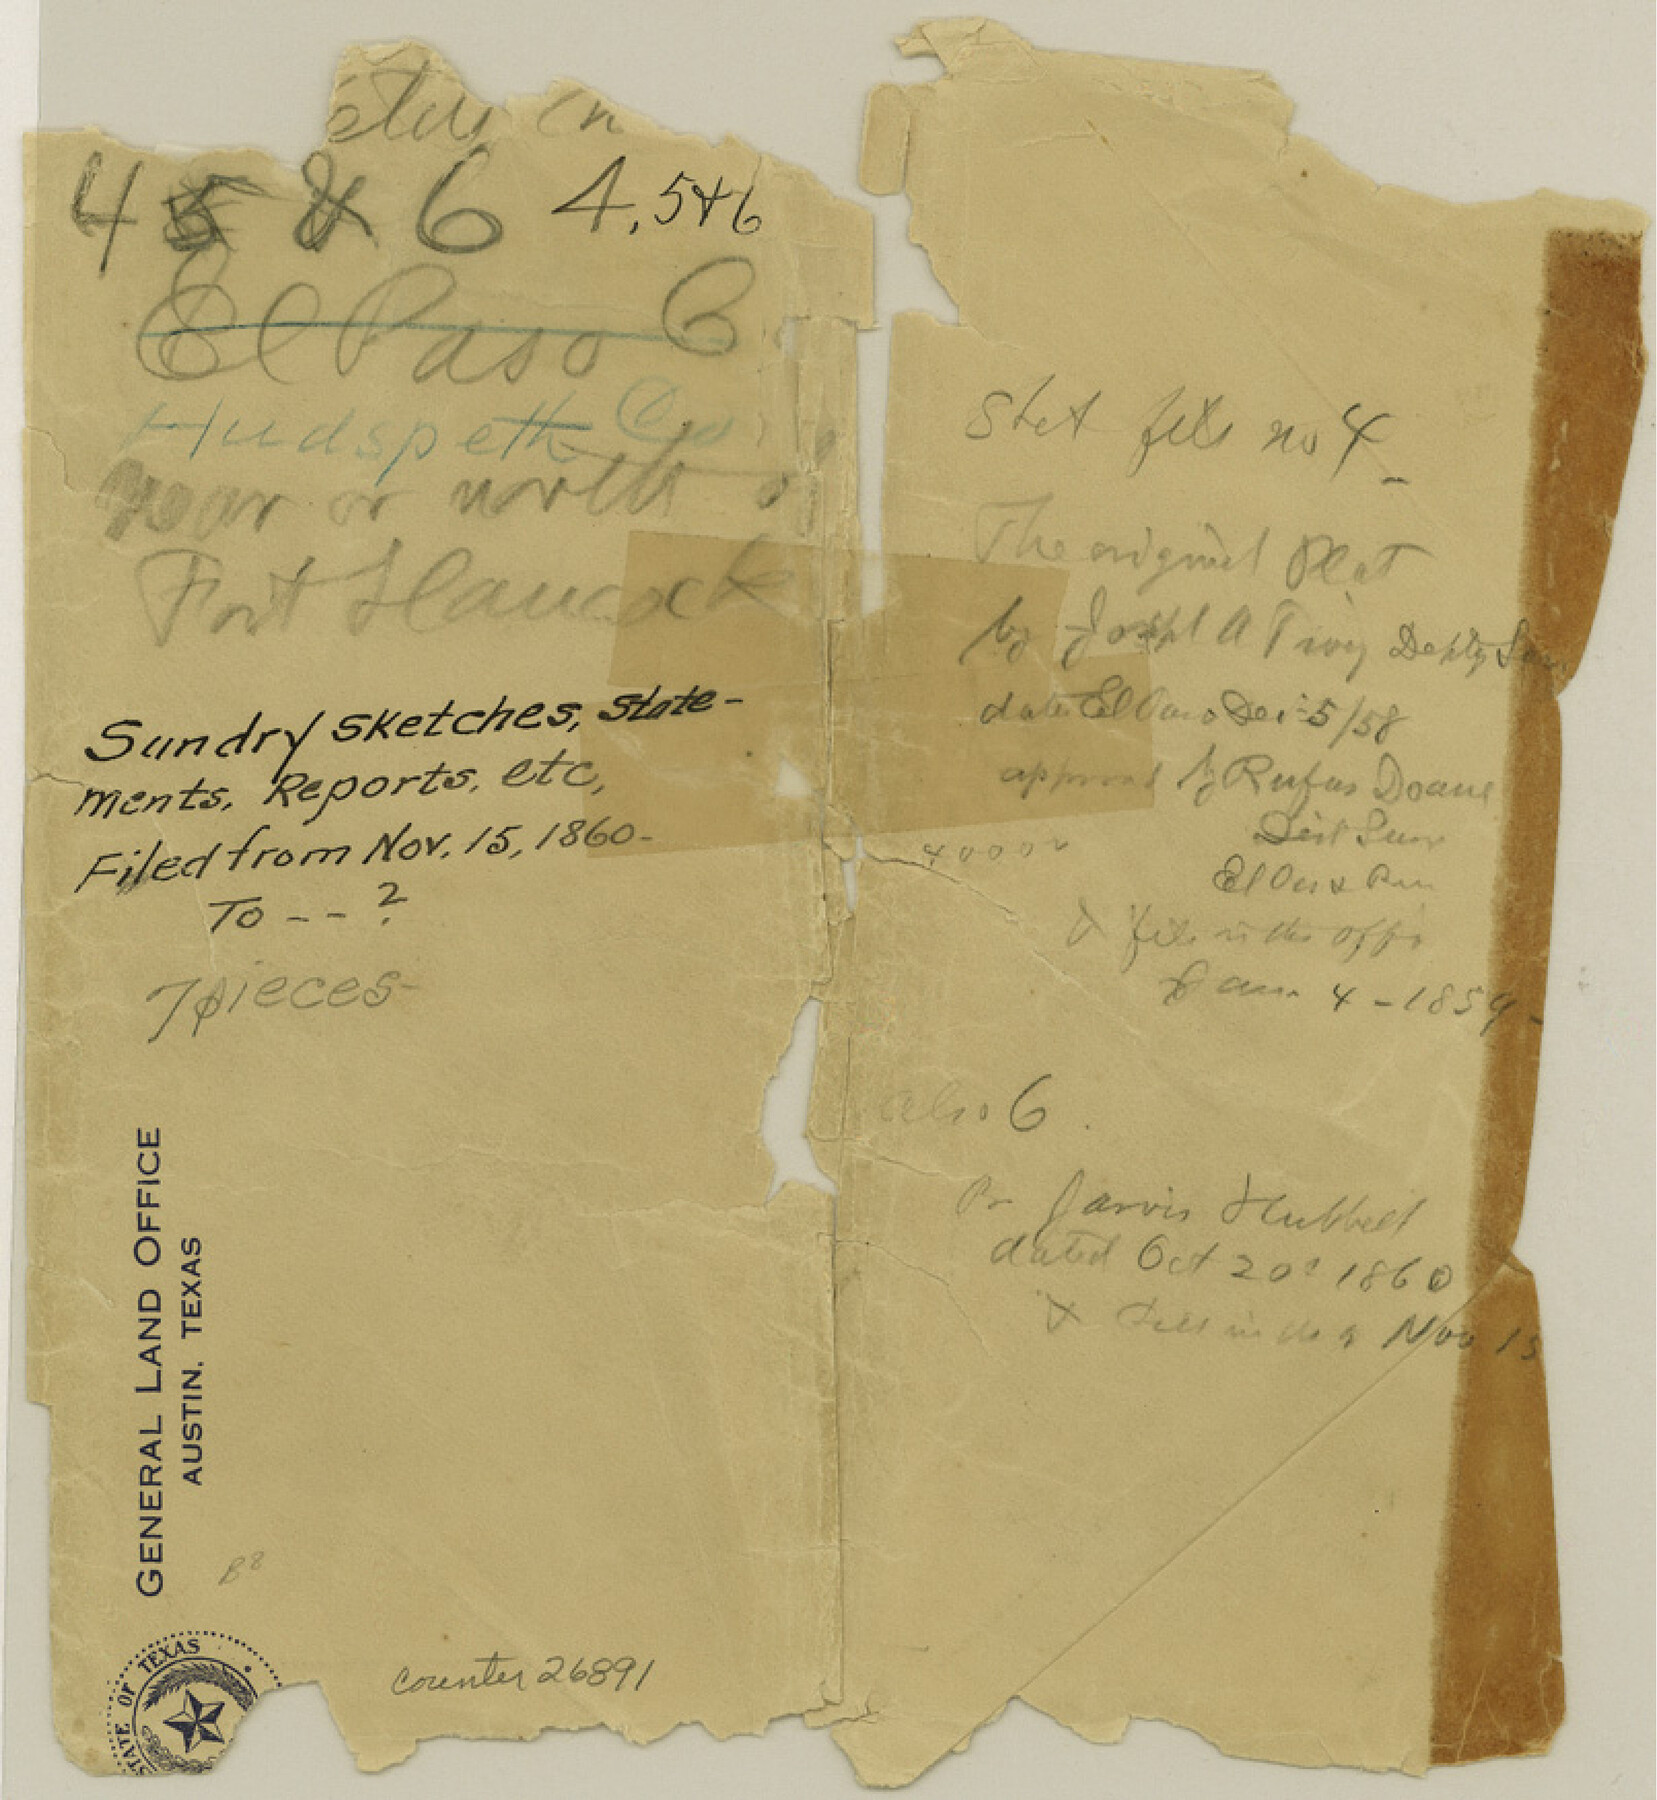 in
4 5 & 6 4, 5 & 6
El Paso C
Hudspeth Co
near or north o
Fort Hancock
Sundry sketches, state-
ments, Reports, etc,
Filed from Nov. 15, 1860-
To -- ?
7 pieces-
GENERAL LAND OFFICE
AUSTIN, TEXAS
B8
STATE OF TEXAS
counter 26891
Sket file no 4
The original Plat
by Joseph A Tivy Depty Sur
date El Paso Dec 5/58
approved by Rufus Doane
Dist Surv
El Paso
& file in the offi
Jan. 4 - 1859-
also 6
Jarvis Hubbell
dated Oct 20 1860
& Nov 15